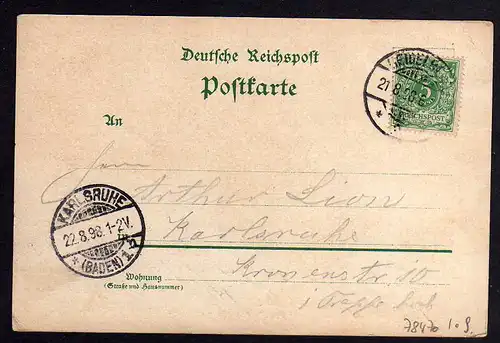 Deutsche Reichspost
Postkarte
An
Herrn
Arthur Lion
in Karlsruhe
Kronenstr. 10
1 Treppe hoch
Wohnung
(Straße und Hausnummer)
KARLSRUHE
22.8.98.1-2V.
*(BADEN)1
21.8.98.
5
REICHSPOST
78470